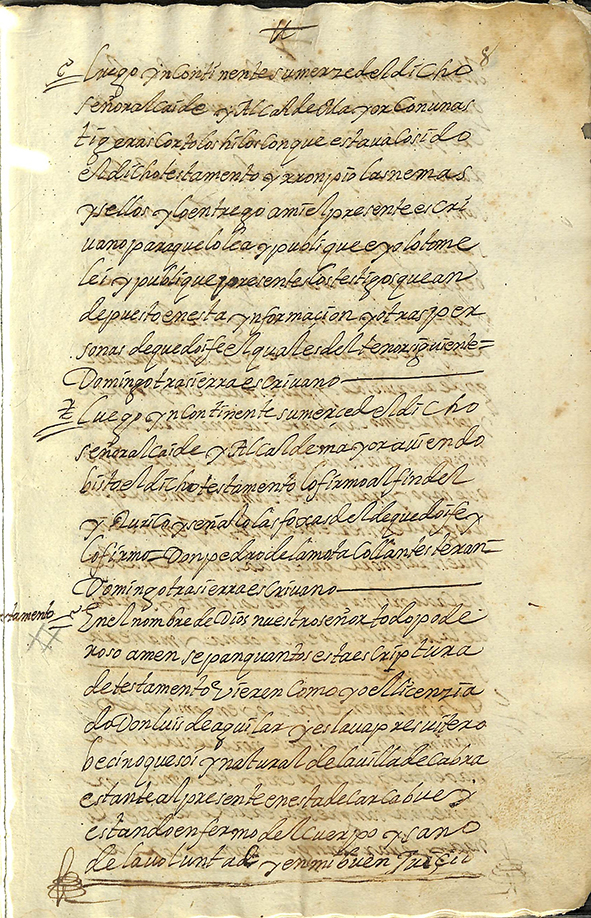 8
E luego yn continente su merzed el dicho
señor alcaide y Alcalde Mayor con unas
tigeras corto los hilos con que estava cosido
el dicho testamento y rronpio las nemas
y sellos y lo entrego a mi el presente escri
uano para que lo lea y publique e yo lo tome
lei y publique presentes los testigos que an
depuesto en esta ynformacion y otras per
sonas de que doi fe el qual es del tenor siguiente=
Domingo trasierra escrivano
E luego yn continente su merced el dicho
señor alcaide y Alcalde mayor auiendo
bisto el dicho testamento lo firmo al fin del
y Rurico y señalo las foxas del de que doi fe y
lo firmo= Don pedro de la mota Collantes teran=
Domingo trasierra escrivano
stamento
En el nombre de Dios nuestro señor todo pode
roso amen sepan quantos esta escriptura
de testamento Vieren como yo el licenzia
do Don luis de aguilar y eslaua presuitero
becino que soi y natural de la uilla de Cabra
estante al presente en esta de Carcabuei y
estando enfermo del cuerpo y sano
de la voluntad y en mi buen Juicio